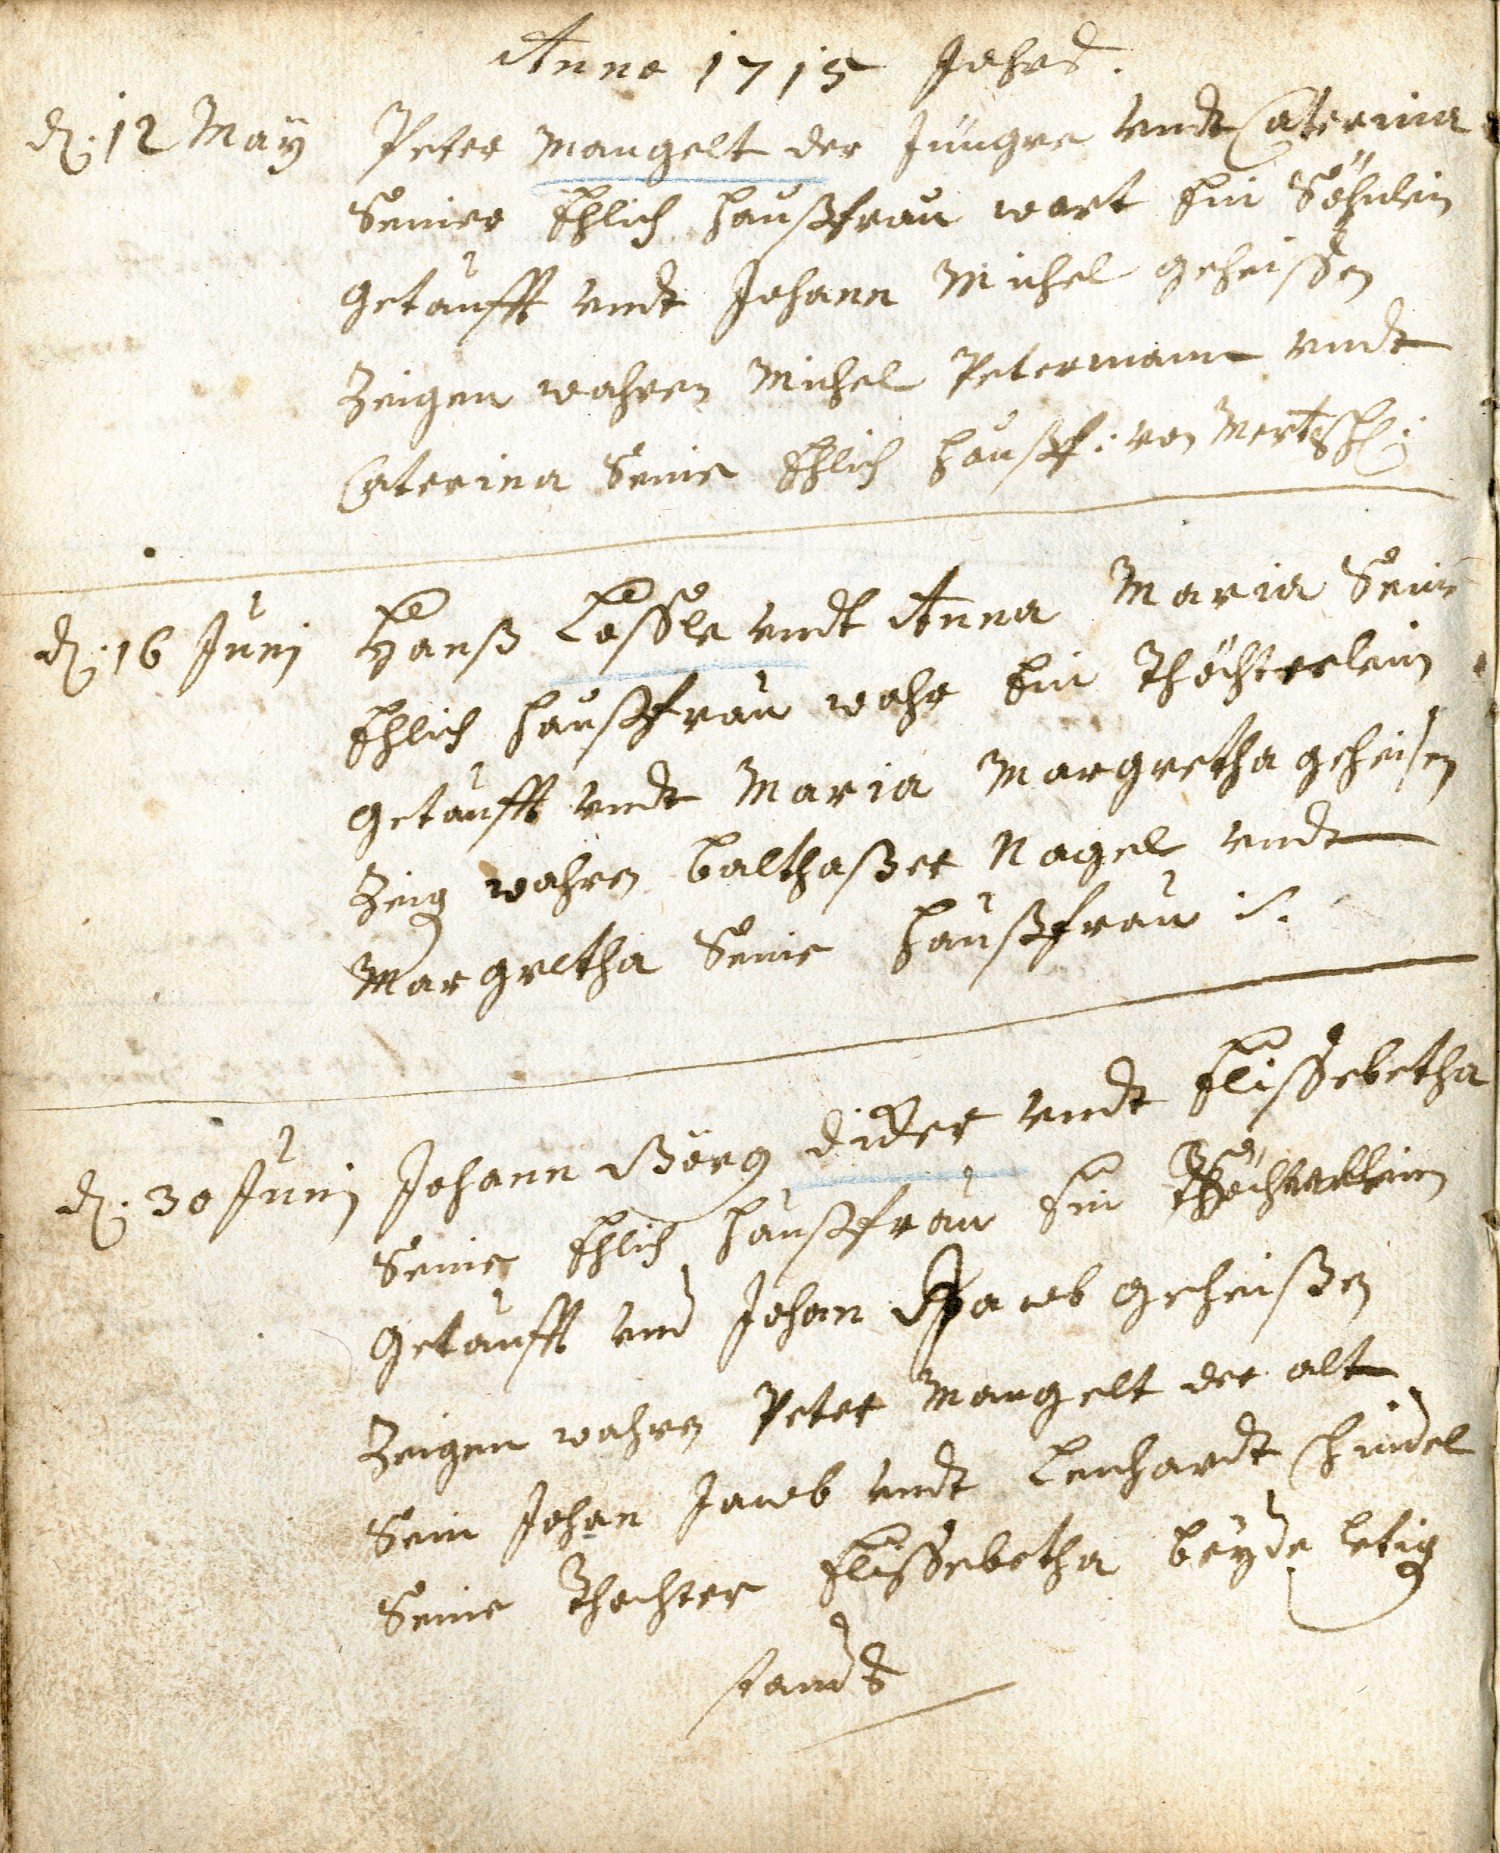 Anno 1715 Jahrs.
d. 12 May Peter Mangelt der Jüngre undt Caterina
Seiner Ehlich haußfrau wart Ein Söhnlein
getaufft undt Johann Michel geheissen
Zeigen wahren Michel Petermann undt
Caterina Seine Ehlich haußf: von
d. 16 Junj Hanß Lessle undt Anna Maria Sein
Ehlich haußfrau wahr Ein Thöchterlein
getaufft undt Maria Margretha geheisen
Zeig wahren balthaßer Nagel undt
Margretha Seine haußfrau
d. 30 Junj Johann Görg dider undt Elissebetha
Seine Ehlich haußfrau Ein
getaufft und Johan Jacob geheißen
Zeigen wahren Peter Mangelt der alt
Sein Johan Jacob undt Lenhardt Schindel
Seine Thochter Elissebetha beyde letig
stands